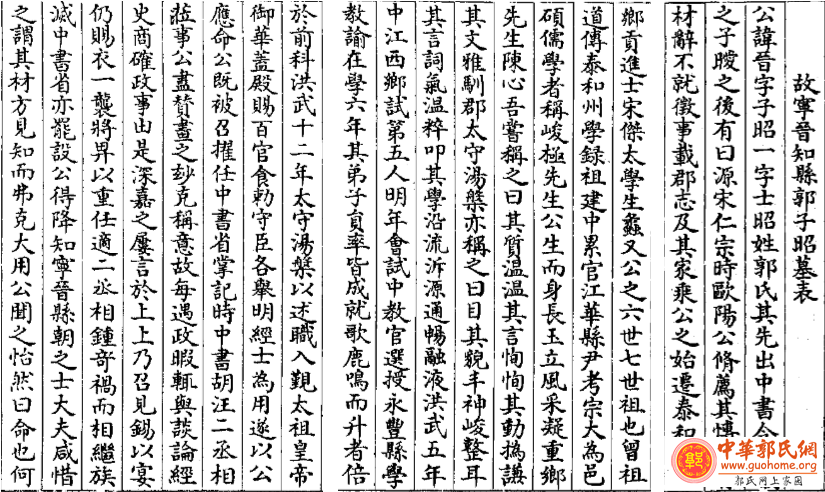 故寧晉知縣郭子昭墓表
公諱晉字子昭一字士昭姓郭氏其先出中書令
之子曖之後有曰源宋仁宗時歐陽公脩薦其
材辭不就徵事載郡志及其家乘公之始遷泰和
鄉貢進士宋傑太學生蠡又公之六世七世祖也曾祖
道傳泰和州學録祖建中累官江華縣尹考宗大為邑
碩儒學者稱峻極先生公生而身長玉立風采凝重鄉
先生陳心吾嘗稱之曰其質温温其言恂恂其動撝謙
其文雅馴郡太守湯槃亦稱之曰目其貌丰神峻整耳
其言詞氣温粹叩其學沿流泝源通暢融液洪武五年
中江西鄉試第五人明年會試中教官選授永豐縣學
教諭在學六年其弟子員率皆成就歌鹿鳴而升者倍
於前科洪武十二年太守湯槃以述職入覲太祖皇帝
御華蓋殿賜百官食勅守臣各舉明經士為用遂以公
應命公既被召擢任中書省掌記時中書胡汪二丞相
蒞事公盡賛畫之玅克稱意故每遇政暇輒與談論經
史商確政事由是深嘉之屢言於上上乃召見錫以宴
仍賜衣一襲將畀以重任適二丞相鍾竒禍而相繼族
滅中書省亦罷設公得降知寧晉縣朝之士大夫咸惜
之謂其材方見知而弗克大用公聞之怡然曰命也何
中華郭氏網
www.guohome.org
郭氏网上家园